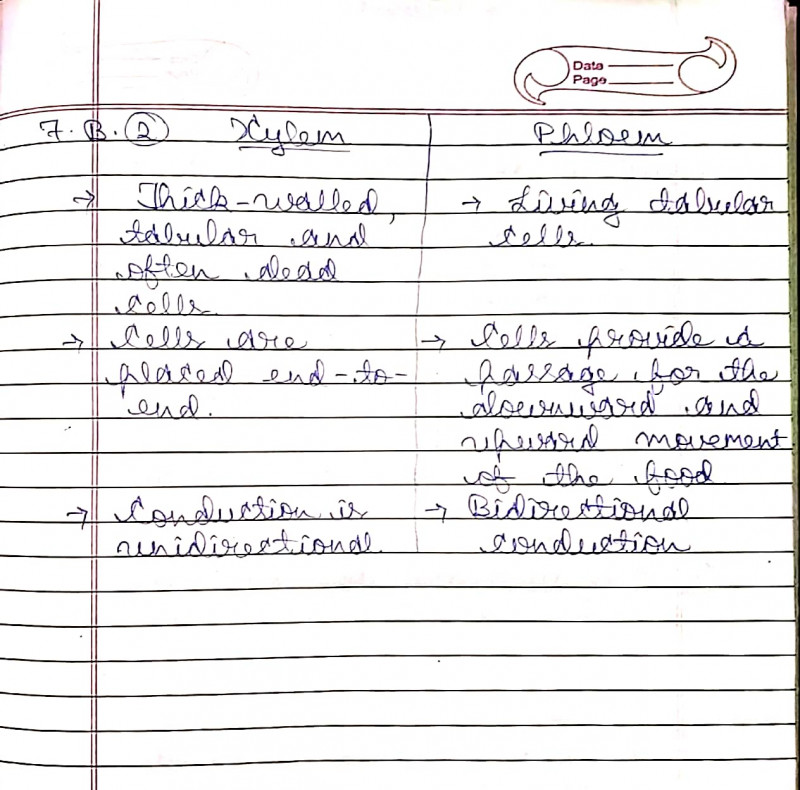 Date
Page
7. B. 2 Xylem Phloem
→ Thick-walled, → Living tabular
tabular and cells.
often dead
cells.
→ Cells are → Cells provide a
placed end-to- passage for the
end. downward and
upward movement
of the food
→ Conduction is → Bidirectional
unidirectional. conduction